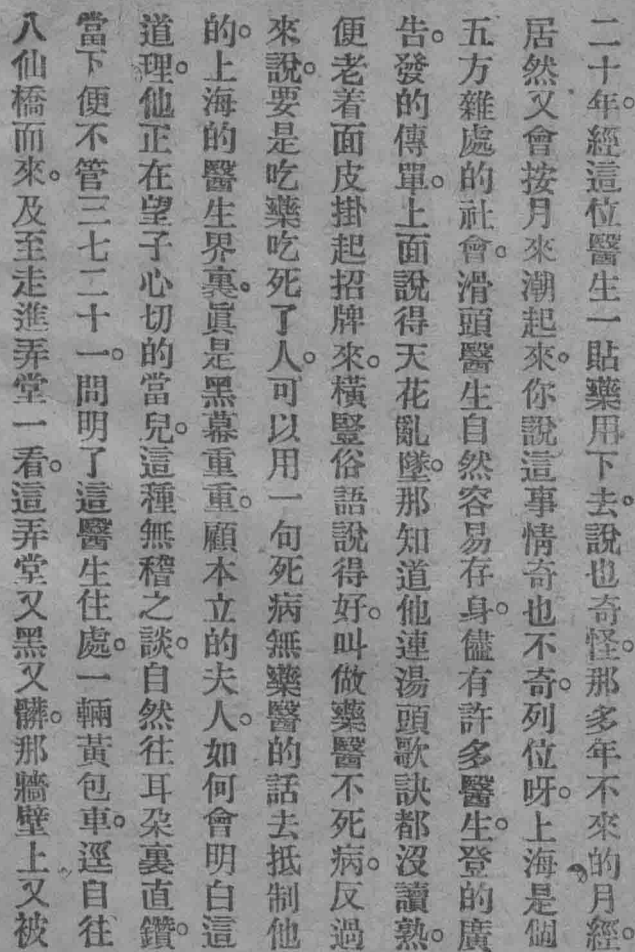 二十年。經這位醫生一貼藥用下去。說也奇怪。那多年不來的月經。
居然又會按月來潮起來。你說這事情奇也不奇。列位呀。上海是個
五方雜處的社會。滑頭醫生自然容易存身。儘有許多醫生。登的廣
告。發的傳單。上面說得天花亂墜。那知道他連湯頭歌訣都沒讀熟。
便老着面皮掛起招牌來。橫豎俗語說得好。叫做藥醫不死病。反過
來說。要是吃藥吃死了人。可以用一句死病無藥醫的話去抵制他
的。上海的醫生界裏。眞是黑幕重重。顧本立的夫人。如何會明白這
道理。他正在望子心切的當兒。這種無稽之談。自然往耳朶裏直鑽。
當下便不管三七二十一。問明了這醫生住處。一輛黃包車。逕自往
八仙橋而來。及至走進弄堂一看。這弄堂又黑又髒。那牆壁上又被